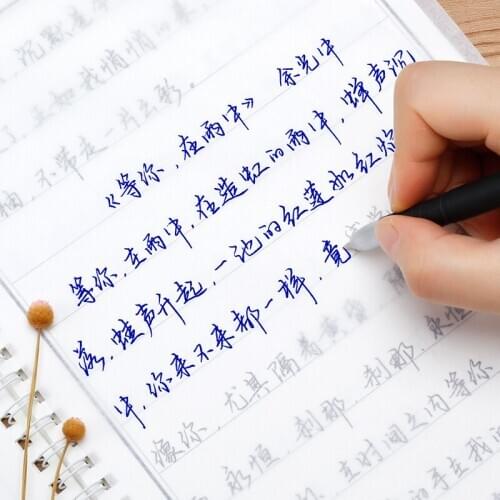 沉默是
我悄悄的
不带走一片云彩。
《等你，在雨中》 余光中
等你，在雨中，在造虹的雨中，蝉声沉
落，蛙声升起，一池的红莲如红焰
中，你来不来都一样，竟
像你，尤其隔着黄昏，隔
永恒，刹那，刹那，永恒
在时间之内等你